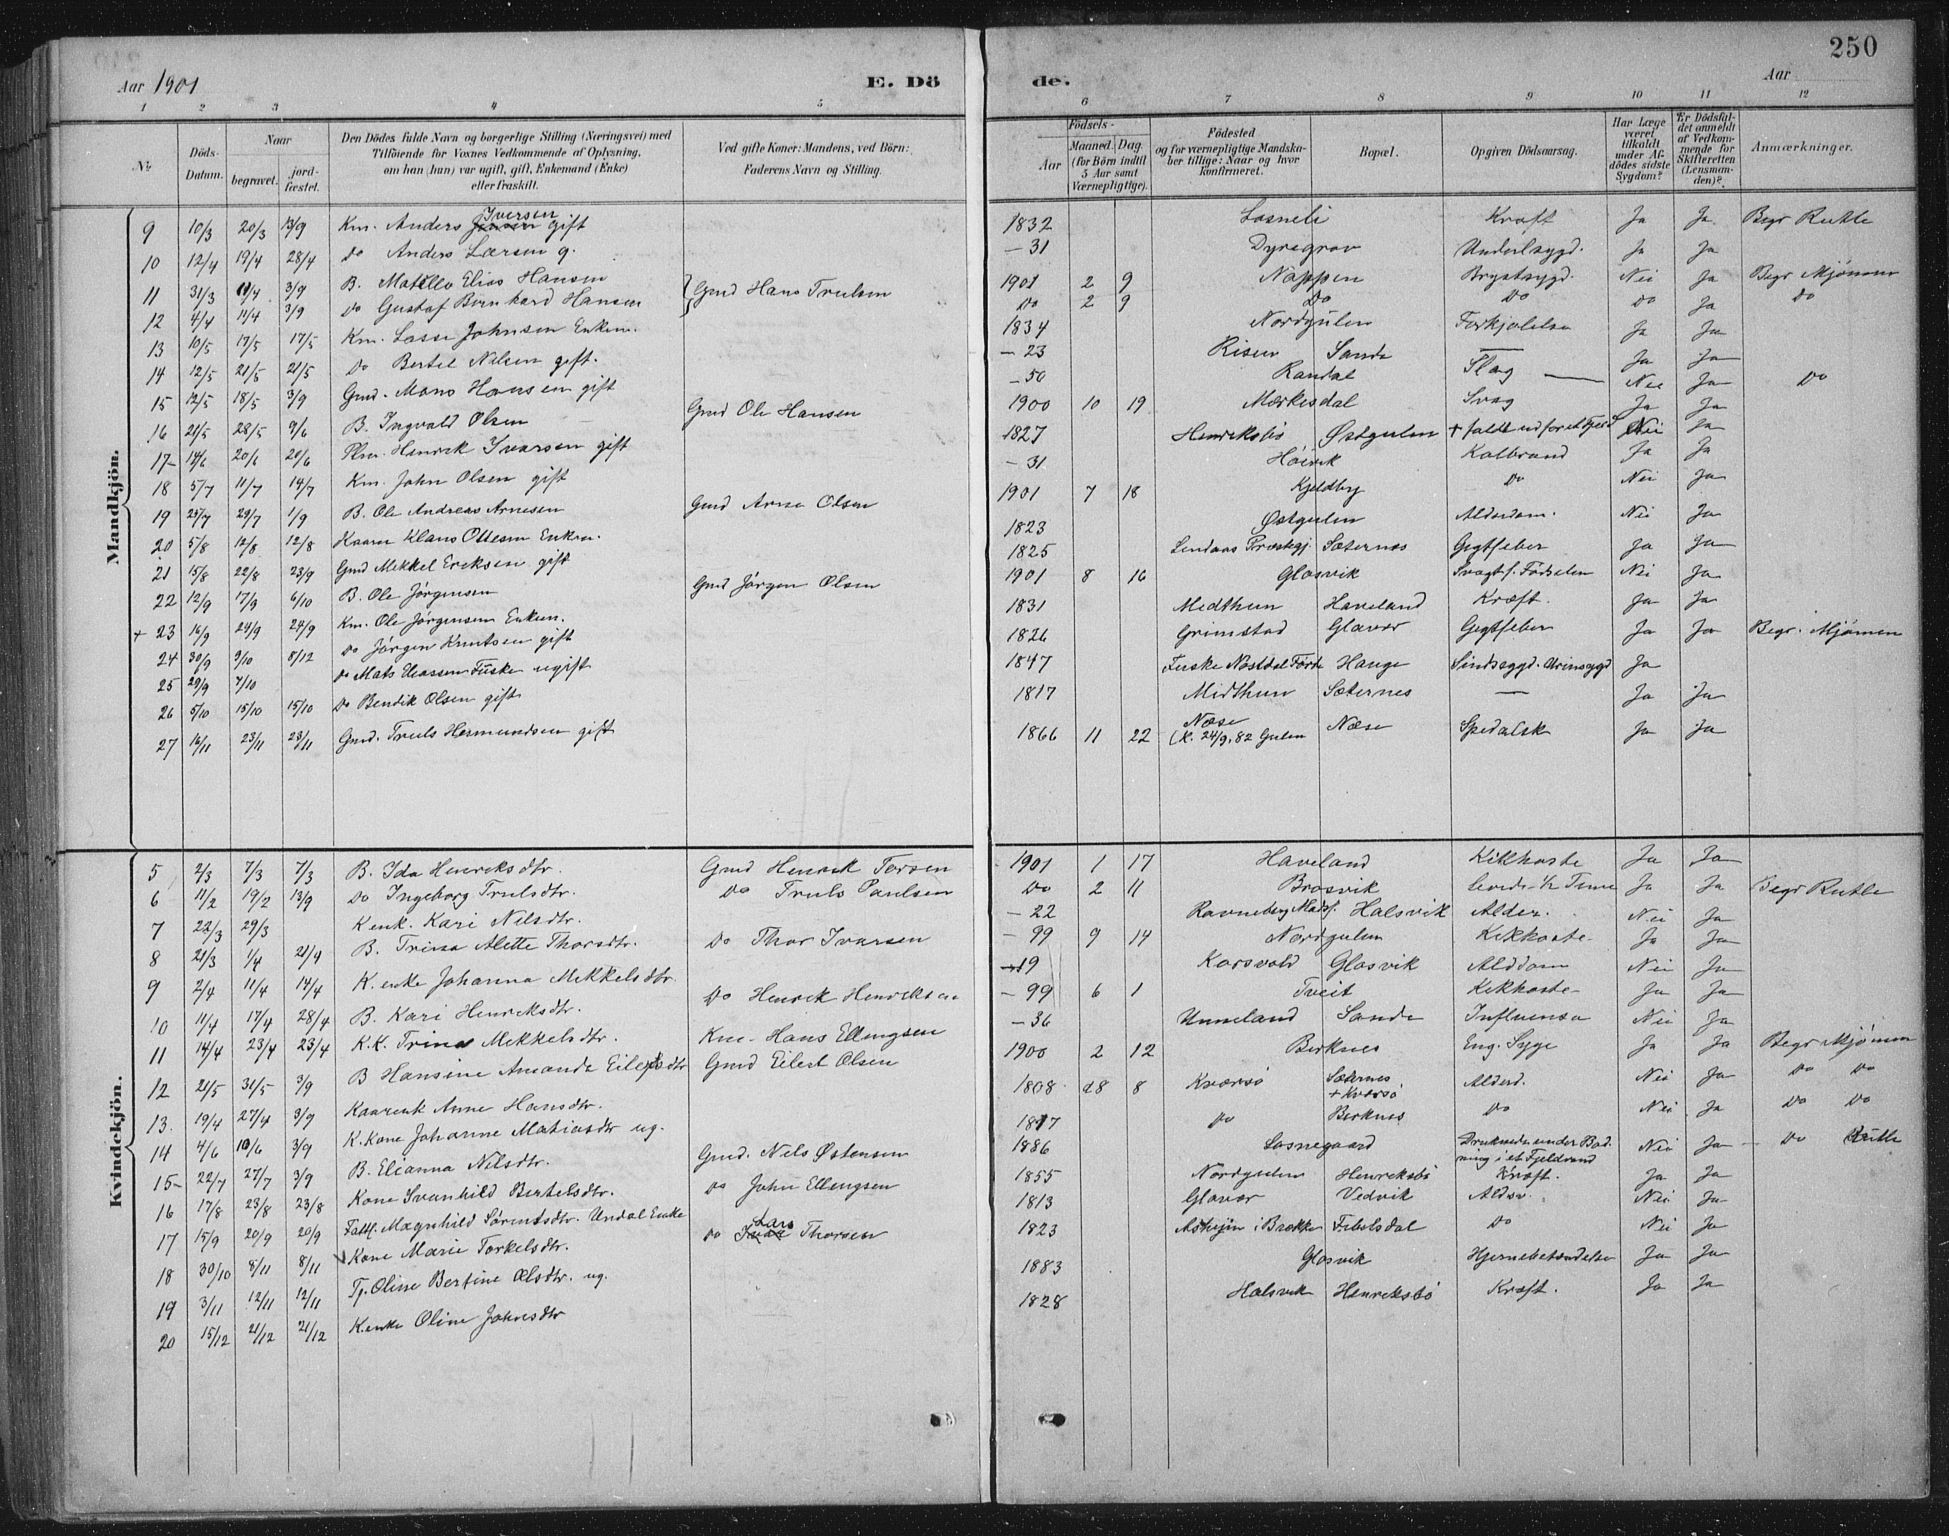 250
Aar 1901 E. Dö de. Aar
1 2 3 4 5 6 7 8 9 10 11 12
No. Döds-Datum. Naar begravet. jordfæstet. Den Dödes fulde Navn og borgerlige Stilling (Næringsvei) med Tilföiende for Voxnes Vedkommende af Oplysning, om han (hun) var ugift, gift, Enkemand (Enke) eller fraskilt. Ved gifte Koner: Mandens, ved Börn: Faderens Navn og Stilling. Födsels- Aar Maaned. Dag. (for Börn indtil 5 Aar samt Værnepligtige). Födested og for værnepligtige Mandskaber tillige: Naar og hvor konfirmeret. Bopæl. Opgiven Dödsaarsag. Har Læge været tilkaldt under Afdödes sidste Sygdom? Er Dödsfaldet anmeldt af Vedkommende for Skifteretten (Lensmanden)? Anmærkninger.
Mandkjön.
9 10/3 20/3 13/9 Km. Anders Iversen gift 1832 Losneli Kræft Ja Ja Begr Rutle
10 12/4 19/4 28/4 Do Anders Larsen g. – 31 Dyregrov Underlivsygd. Ja Ja
11 31/3 11/4 3/9 B. Elias Hansen Gmd Hans Trulsen 1901 2 9 Nappen Brystsygd. Nei Ja Begr Mjömen
12 4/4 11/4 3/9 Do Gustaf Bernhard Hansen Do 2 9 Do Do Do Ja Do
13 10/5 17/5 17/5 Km. Lasse Johnsen Enkem. 1834 Nordgulen Forkjølelse Ja Ja
14 12/5 21/5 21/5 Do Bertel Nilsen gift. – 23 Risen Sande — Ja Ja
15 12/5 18/5 3/9 Gmd. Mons Hansen gift – 50 Randal Slag Nei Ja Do
16 21/5 28/5 9/6 B. Ingvald Olsen Gmd Ole Hansen 1900 10 19 Mærkesdal Svag Ja Ja
17 14/6 20/6 20/6 Henrik Ivarsen gift 1827 Henriksbö Østgulen + faldt ud for et Fjeld Nei Ja
18 5/7 11/7 14/7 Km. John Olsen gift – 31 Høivik Kolbrand Ja Ja
19 25/7 29/7 1/9 B. Ole Andreas Arnesen Gmd Arne Olsen 1901 7 18 Kjeldby Do Nei Ja
20 5/8 12/8 12/8 Kaarm Klaus Ottesen Enkm. 1823 Østgulen Alderdom. Nei Ja
21 15/8 22/8 23/9 Gmd Mekkel Eriksen gift 1825 Lindaas Præstgj. Sæternes Gigtfeber Ja Ja
22 12/9 17/9 6/10 B. Ole Jörgensen Gmd Jörgen Olsen 1901 8 16 Glosvik Svagt f. Födselen Nei Ja
+ 23 16/9 24/9 24/9 Km. Ole Jörgensen Enkem. 1831 Midthun Haveland Kræft. Ja Ja
24 30/9 9/10 8/12 Do Jörgen Knutsen gift 1826 Grimstad Glavær Gigtfeber Ja Ja Begr. Mjömen
25 29/9 7/10 Do Mats Eliassen Fuske ugift 1847 Fuske Nöstdal Førde Hauge Sindssygd. Urinsygd Ja
26 5/10 15/10 15/10 Do Bendik Olsen gift 1817 Midthun Sæternes — Ja Ja
27 16/11 23/11 23/11 Gmd. Truls Hermundsen gift 1866 11 22 Næse (K. 24/9. 82 Gulen Næse Spedalsk Ja Ja
Kvindekjön.
5 2/3 7/3 7/3 B. Ida Henriksdtr. Gmd Henrik 1901 1 17 Haveland Kikhoste Ja Ja
6 11/2 19/2 13/9 Do Ingeborg Trulsdtr. Do Truls Paulsen Do 2 11 Brosvik levede 1/2 Time Ja Ja Begr Rutle
7 22/3 29/3 K enk. Kari Nilsdtr. – 22 Ravneberg Halsvik Alder. Nei Ja
8 21/3 1/4 21/4 B. Trina Alette Thorsdtr. Do Thor Ivarsen – 99 9 14 Nordgulen Kikhoste Ja Ja
9 2/4 11/4 14/4 K. enke Johanna Mekkelsdtr. – 19 Korsvold Glosvik Alddom Nei Ja
10 11/4 17/4 28/4 B. Kari Henriksdtr. Do Henrik Henriksen – 99 6 1 Tveit Kikhoste Ja Ja
11 14/4 23/4 23/4 K.K. Trina Mekkelsdtr. Km. Hans Ellingsen – 36 Unneland Sande Influensa Nei Ja
12 21/5 31/5 3/9 B Hansine Amanda Eilertsdtr Gmd Eilert Olsen 1900 2 12 Berknes Eng. Syge Ja Ja Begr Mjömen
13. 19/4 27/4 3/9 Kaarenk Anne Hansdtr. 1808 8 Kversö Sæternes + Kversö Alderd. Nei Ja Do Do
14 4/6 10/6 3/9 K.kone Johanne Matiasdtr ug. 1817 Do Berknes Do Nei Ja Do Do
15 22/7 27/7 3/9 B. Elianna Nilsdtr. Gmd. Nils Østensen 1886 Losnegaard Druknede under Badning i et Fjeldvand Nei Ja Do Rutle
16 17/8 23/8 23/8 Kone Svanhild Bertelsdtr. Do John Ellingsen 1855 Nordgulen Henriksbö Kræft. Ja Ja
17 15/9 20/9 20/9 Fattl. Magnhild Sörensdtr. Undal Enke 1813 Glavær Vedvik Aldsv. Nei Ja
18 30/10 8/11 8/11 Kone Marie Torkelsdtr. Do Lars Thorsen 1823 i Brække Do Nei Ja
19 3/11 12/11 12/11 Tp. Oline Bertine Olsdtr. ug. 1883 Glosvik Hjernebetændelse Ja Ja
20 15/12 21/12 21/12 K.enke Oline Johnsdtr 1828 Halsvik Henriksbö Kræft. Ja Ja